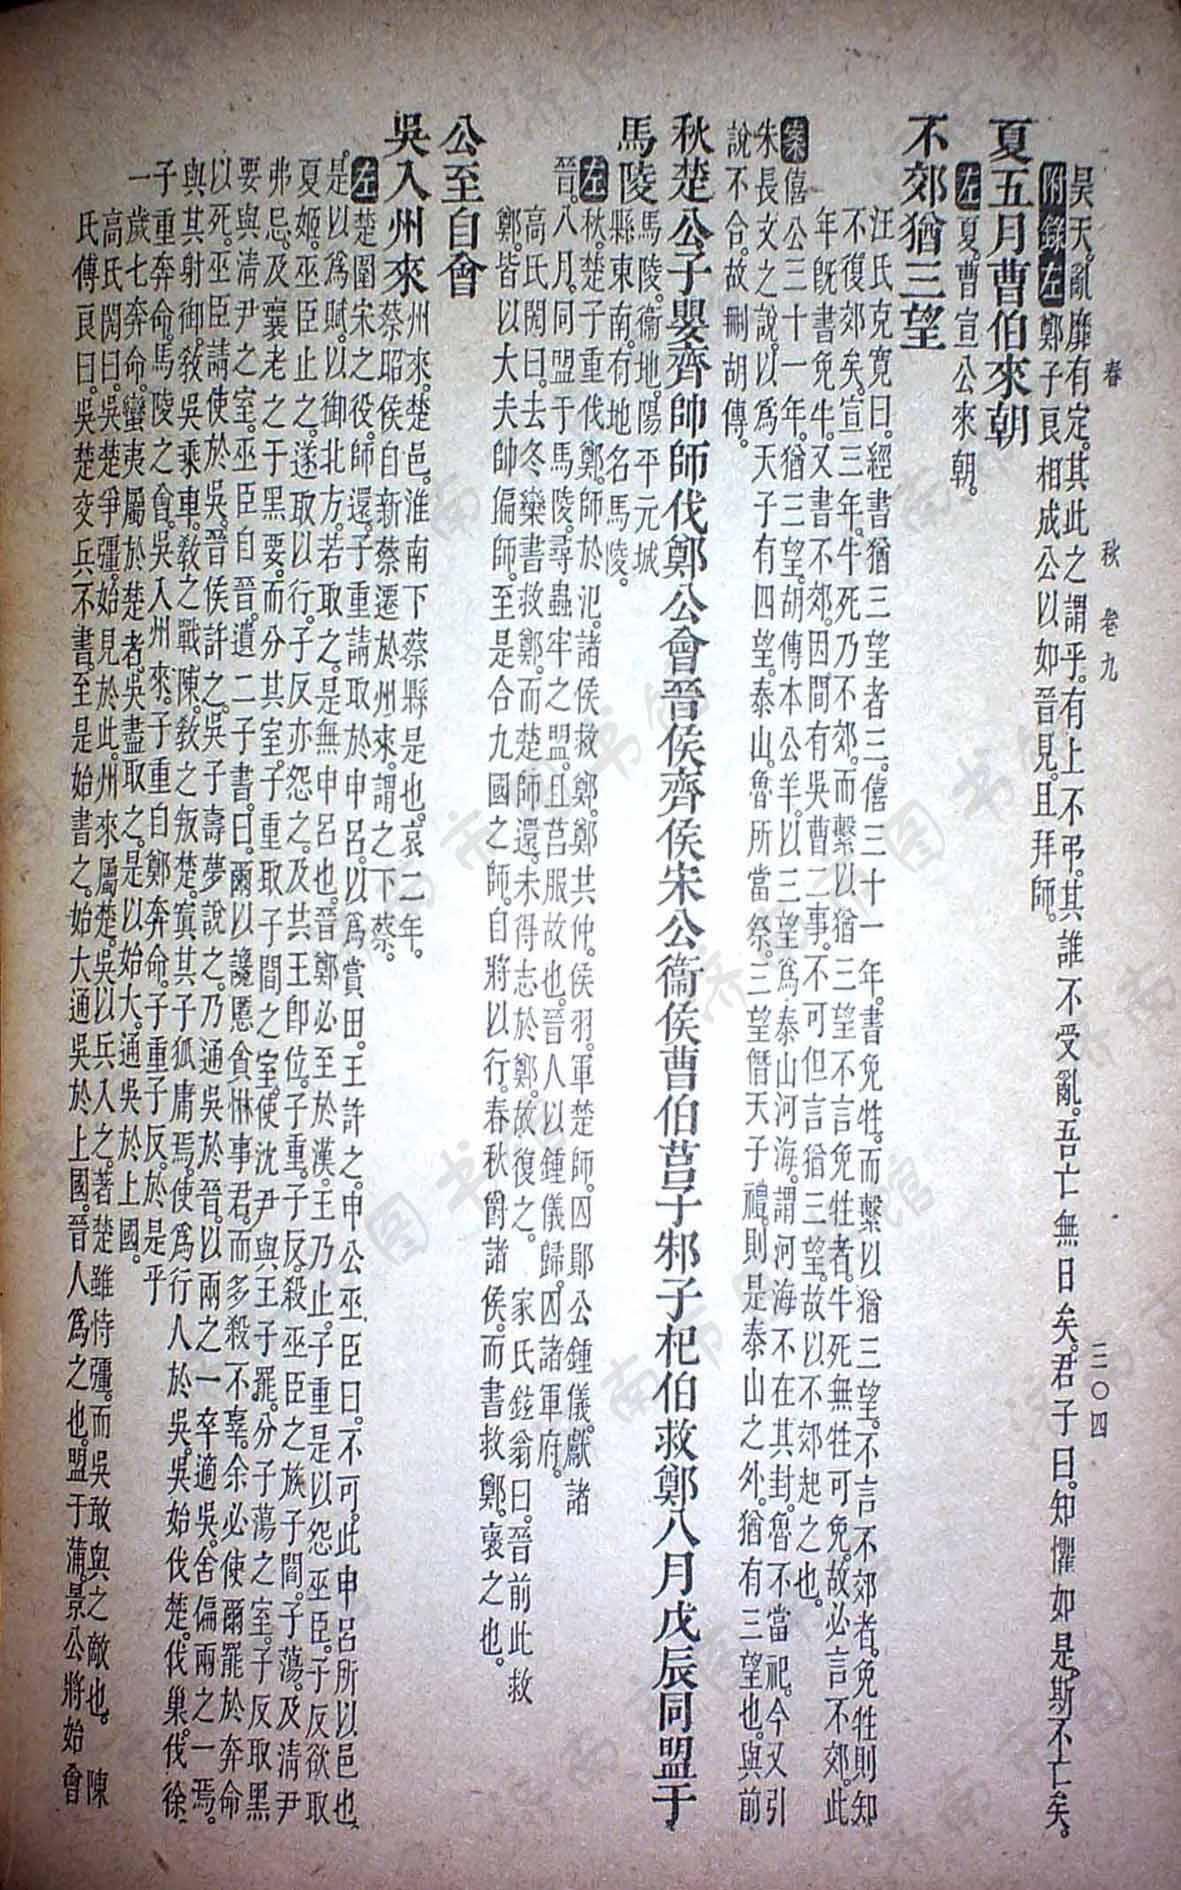 春秋 卷九 三〇四
昊天亂靡有定。其此之謂乎。有上不弔。其誰不受亂。吾亡無日矣。君子曰。知懼如是。斯不亡矣。
附錄左鄭子良相成公以如晉見。且拜師。
夏五月曹伯來朝
左夏。曹宣公來朝。
不郊猶三望
汪氏克寬曰。經書猶三望者三。僖三十一年。書免牲。而繫以猶三望。不言不郊者。免牲則知
不復郊矣。宣三年。牛死乃不郊。而繫以猶三望。不言免牲者。牛死無牲可免。故必言不郊。此
年既書免牛。又書不郊。因間有吳曹二事。不可但言猶三望。故以不郊起之也。
案僖公三十一年。猶三望。胡傳本公羊。以三望爲泰山河海。謂河海不在其封。魯不當祀。今又引
朱長文之說。以爲天子有四望。泰山。魯所當祭。三望僭天子禮。則是泰山之外。猶有三望也。與前
說不合。故刪胡傳。
秋楚公子嬰齊帥師伐鄭公會晉侯齊侯宋公衞侯曹伯莒子邾子杞伯救鄭八月戊辰同盟于
馬陵馬陵。衞地。陽平元城
縣東南。有地名馬陵。
左秋。楚子重伐鄭。師於氾。諸侯救鄭。鄭共仲。侯羽。軍楚師。囚鄖公鍾儀。獻諸
晉。八月。同盟于馬陵。尋蟲牢之盟。且莒服故也。晉人以鍾儀歸。囚諸軍府。
高氏閌曰。去冬欒書救鄭。而楚師還。未得志於鄭。故復之。 家氏鉉翁曰。晉前此救
鄭。皆以大夫帥偏師。至是合九國之師。自將以行。春秋爵諸侯。而書救鄭。襃之也。
公至自會
吳入州來州來。楚邑。淮南下蔡縣是也。哀二年。
蔡昭侯自新蔡遷於州來。謂之下蔡。
左楚圍宋之役。師還。子重請取於申呂。以爲賞田。王許之。申公巫臣曰。不可。此申呂所以邑也。
是以爲賦。以御北方。若取之。是無申呂也。晉鄭必至於漢。王乃止。子重是以怨巫臣。子反欲取
夏姬。巫臣止之。遂取以行。子反亦怨之。及共王卽位。子重。子反。殺巫臣之族子閻。子蕩。及淸尹
弗忌。及襄老之子黑要。而分其室。子重取子閻之室。使沈尹與王子罷。分子蕩之室。子反取黑
要與淸尹之室。巫臣自晉。遺二子書。曰。爾以讒慝貪惏事君。而多殺不辜。余必使爾罷於奔命
以死。巫臣請使於吳。晉侯許之。吳子壽夢說之。乃通吳於晉。以兩之一卒適吳。舍偏兩之一焉。
與其射御。敎吳乘車。敎之戰陳。敎之叛楚。寘其子狐庸焉。使爲行人於吳。吳始伐楚。伐巢。伐徐。
子重奔命。馬陵之會。吳入州來。子重自鄭奔命。子重子反。於是乎
一歲七奔命。蠻夷屬於楚者。吳盡取之。是以始大。通吳於上國。
高氏閌曰。吳楚爭彊。始見於此。州來屬楚。吳以兵入之。著楚雖恃彊。而吳敢與之敵也。 陳
氏傅良曰。吳楚交兵不書。至是始書之。始大通吳於上國。晉人爲之也。盟于蒲。景公將始會